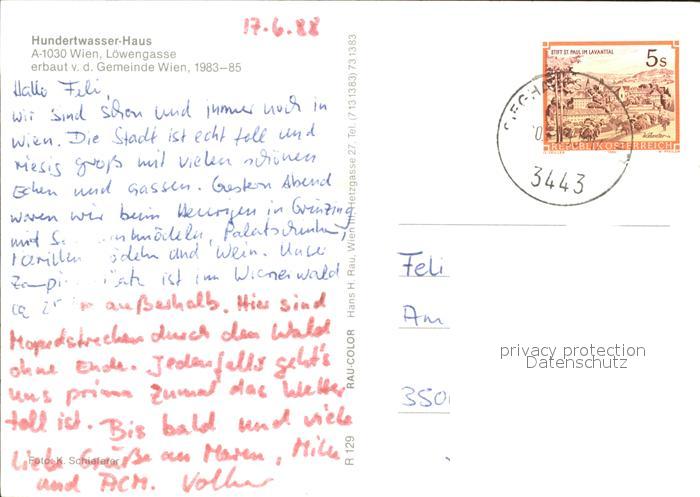 17.6.88
Hundertwasser-Haus
A-1030 Wien, Löwengasse
erbaut v. d. Gemeinde Wien, 1983–85
Hallo Feli,
wir sind schon und immer noch in
Wien. Die Stadt ist echt toll und
riesig groß mit vielen schönen
Ecken und Gassen. Gestern Abend
waren wir beim Heurigen in Grinzing
mit Palatschinken,
und Wein. Unser
ist im Wienerwald
ca außerhalb. Hier sind
Mopedstrecken durch den Wald
ohne Ende. Jedenfalls geht's
uns prima zumal das Wetter
toll ist. Bis bald und viele
liebe Grüße an Maren,
und ACM. Volker
Foto: K. Schieferer
R 129 RAU-COLOR Hans H. Rau, Wien Hetzgasse 27, Tel. (7131383) 731383
STIFT ST. PAUL IM LAVANTTAL
5s
REPUBLIK ÖSTERREICH
3443
Feli
Am
350
privacy protection
Datenschutz